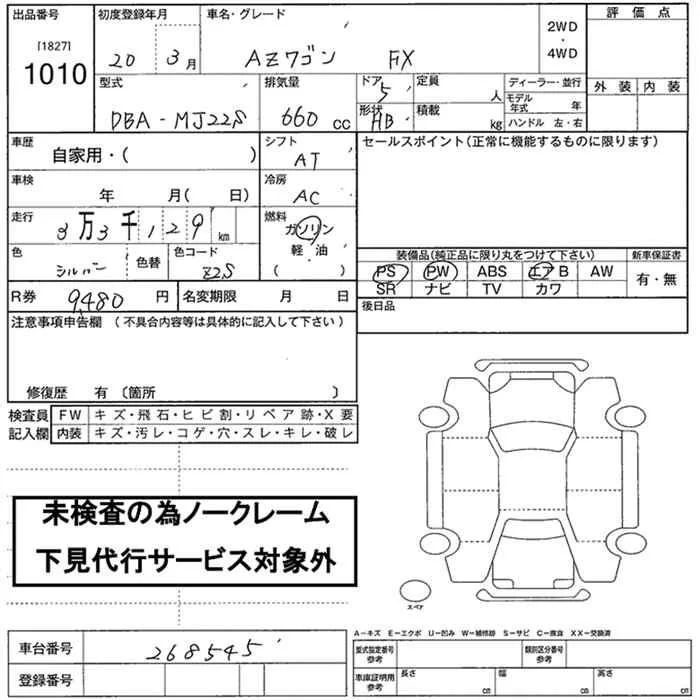 出品番号 初度登録年月 車名・グレード 2WD・4WD 評価点
[1827]
1010 20 3月 AZワゴン FX
外装 内装
型式 排気量 ドア 5 定員 人 ディーラー・並行
DBA-MJ22S 660 cc 形状 HB 積載 kg モデル年式 年
ハンドル 左・右
車歴 自家用・( ) シフト AT セールスポイント(正常に機能するものに限ります)
車検 年 月( 日) 冷房 AC
走行 3万3千129km 燃料 ガソリン
軽・油
( )
色 シルバー 色替 色コード Z2S
装備品(純正品に限り丸をつけて下さい) 新車保証書
PS PW ABS エアB AW 有・無
SR ナビ TV カワ
R券 9,480円 名変期限 月 日 後日品
注意事項申告欄(不具合内容等は具体的に記入して下さい)
修復歴 有〔箇所 〕
検査員 FW キズ・飛石・ヒビ割・リペア跡・X要
記入欄 内装 キズ・汚レ・コゲ・穴・スレ・キレ・破レ
未検査の為ノークレーム
下見代行サービス対象外
スペア
A-キズ E-エクボ U-凹み W-補修跡 S-サビ C-腐食 XX-交換済
車台番号 268545 型式指定番号 参考 類別区分番号 参考
登録番号 車庫証明用 参考 長さ cm 幅 cm 高さ cm